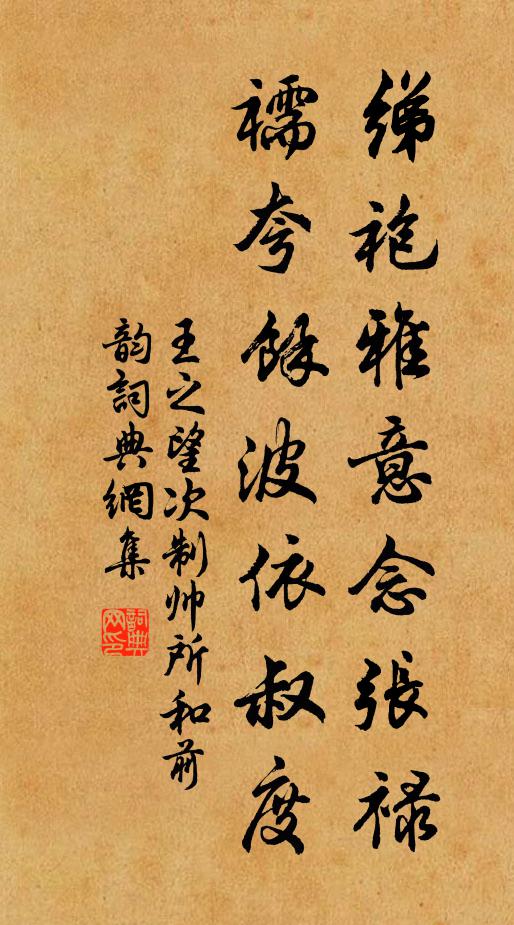 绨袍雅意念張祿
襦夸餘波依叔度
王之望次制帅所和前
韵詞典網集
詞典網印